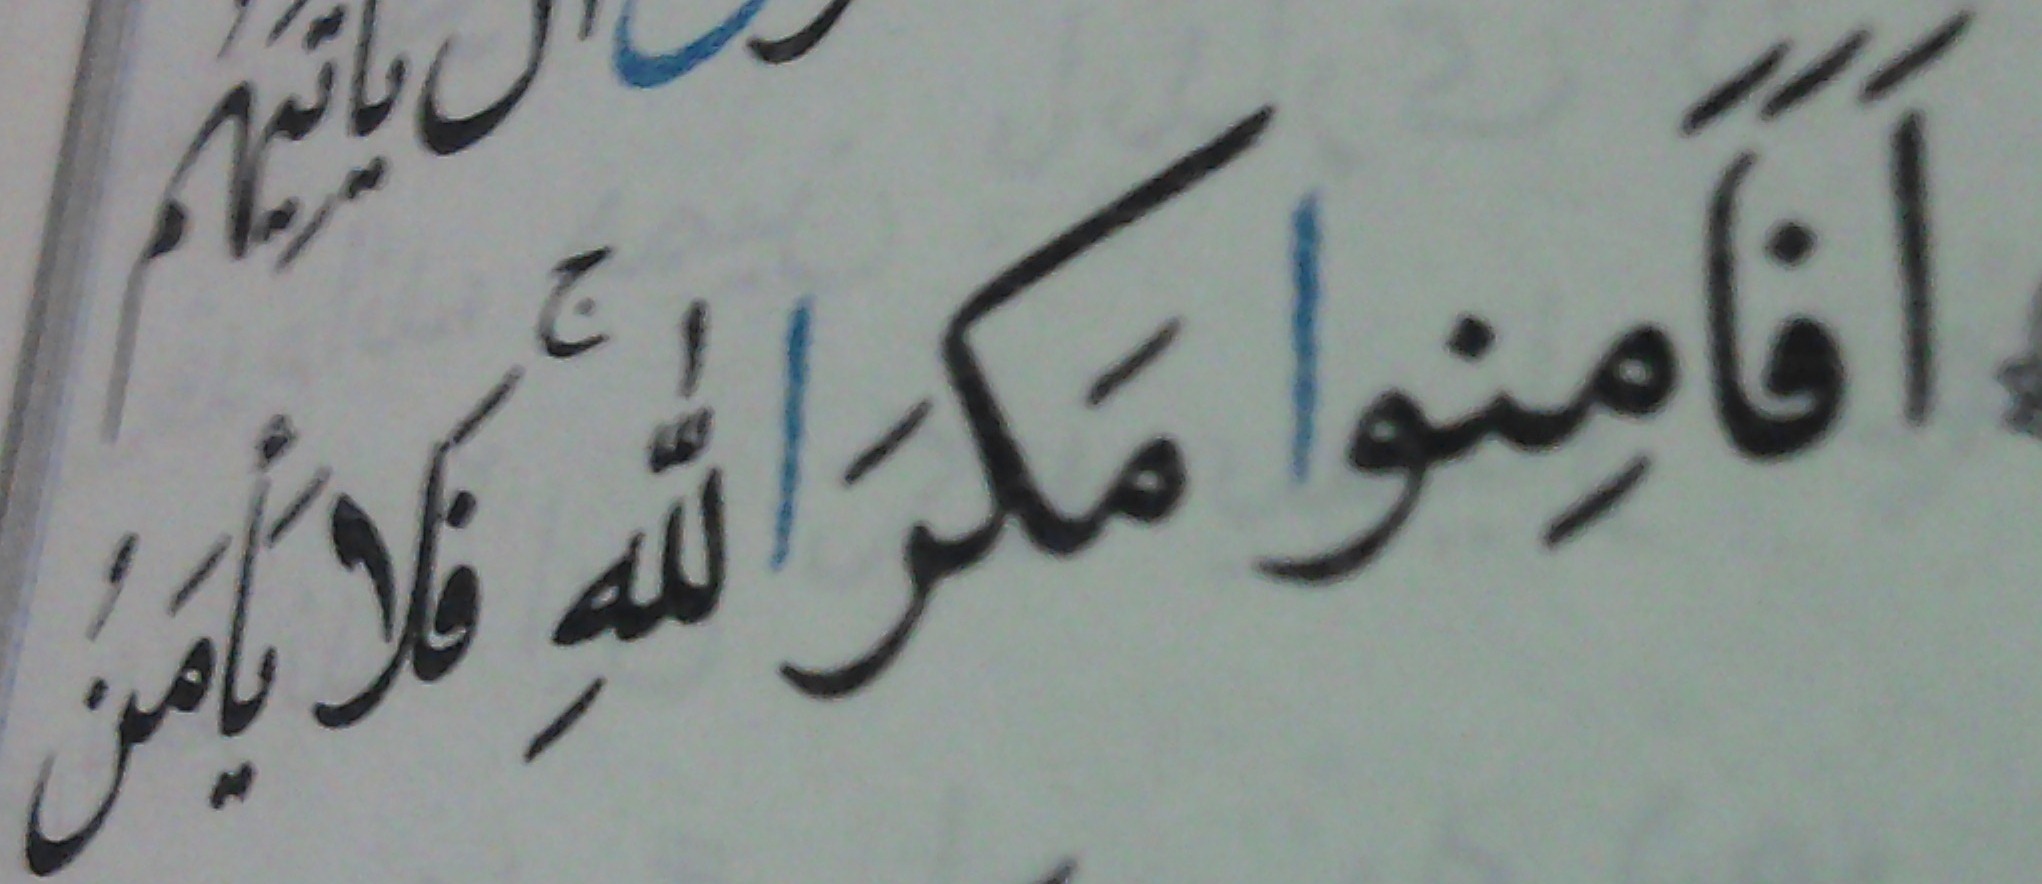 اَن يَأتِيَهُم
اَفَاَمِنوا مَكرَ اللّٰهِ ۚ فَلا يَأمَنُ